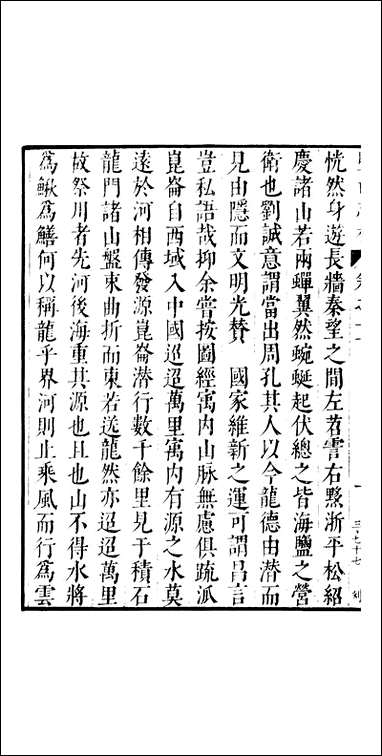 恍然身遊長牆秦望之間左苕霅右黟浙平松紹
慶諸山若兩蟬翼然蜿蜒起伏總之皆海鹽之營
衛也劉誠意謂當出周孔其人以今龍德由潛而
見由隱而文明光贊 國家維新之運可謂昌言
豈私語哉抑余嘗按圖經寓內山脉無慮俱疏派
崑崙自西域入中國迢迢萬里寓內有源之水莫
遠於河相傳發源崑崙潛行數千餘里見于積石
龍門諸山盤束曲折而東若送龍然亦迢迢萬里
故祭川者先河後海重其源也且也山不得水將
爲鰍爲鱔何以稱龍乎界河則止乘風而行爲雲